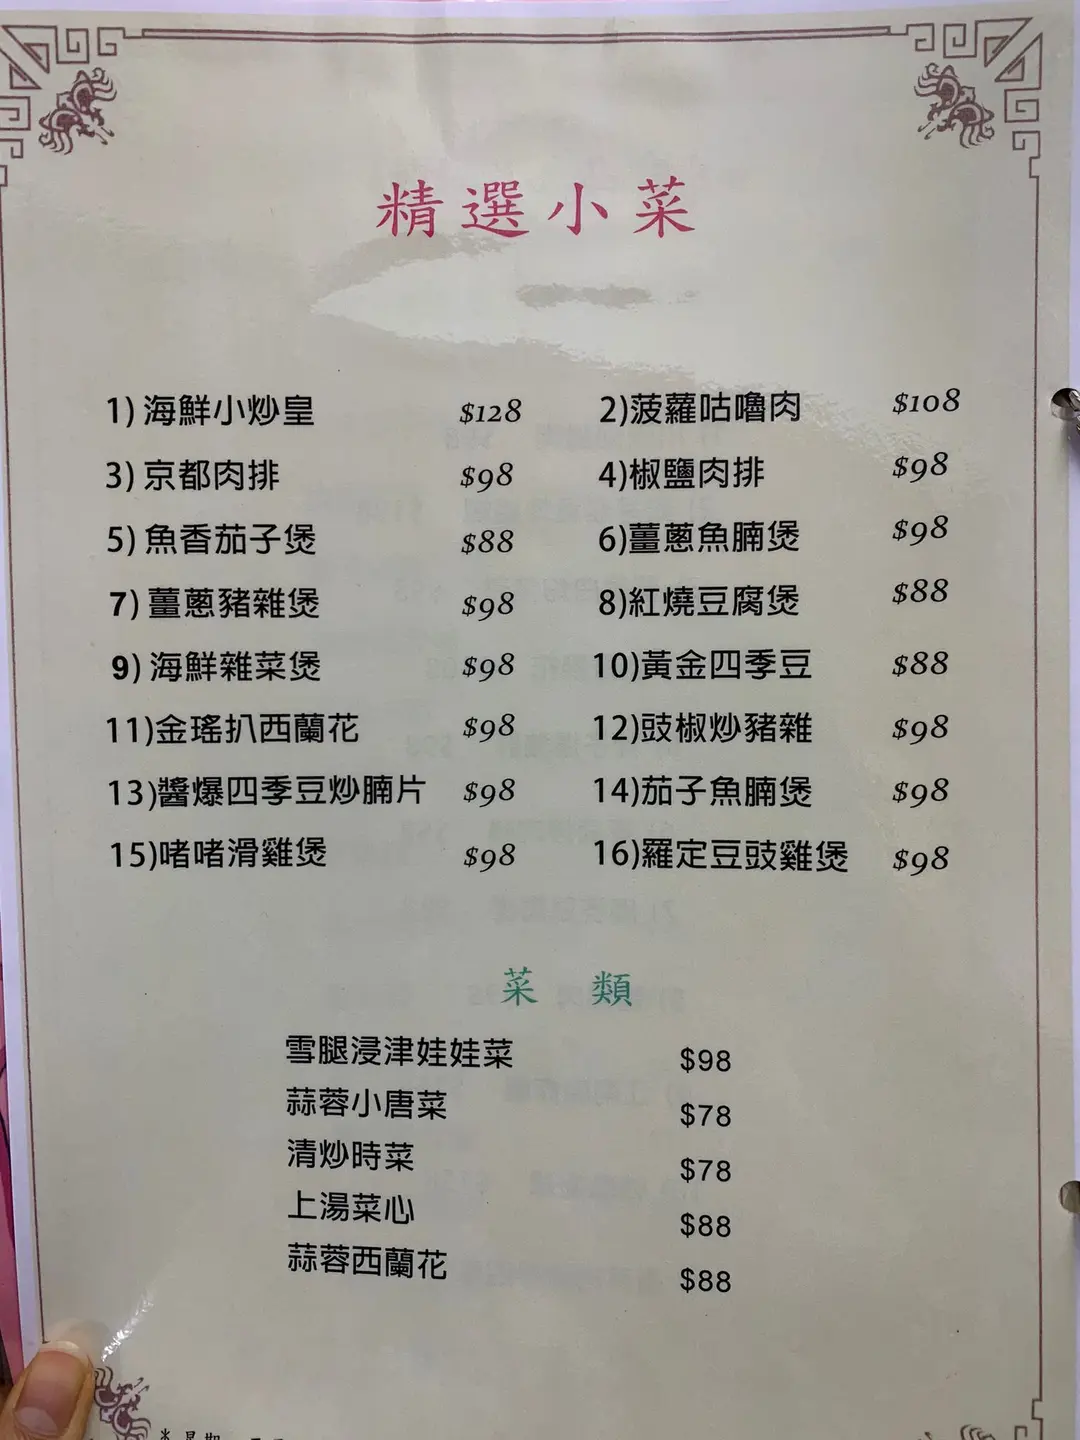 精選小菜
1) 海鮮小炒皇 $128 2)菠蘿咕嚕肉 $108
3) 京都肉排 $98 4)椒鹽肉排 $98
5) 魚香茄子煲 $88 6)薑蔥魚腩煲 $98
7) 薑蔥豬雜煲 $98 8)紅燒豆腐煲 $88
9) 海鮮雜菜煲 $98 10)黃金四季豆 $88
11)金瑤扒西蘭花 $98 12)豉椒炒豬雜 $98
13)醬爆四季豆炒腩片 $98 14)茄子魚腩煲 $98
15)啫啫滑雞煲 $98 16)羅定豆豉雞煲 $98
菜 類
雪腿浸津娃娃菜 $98
蒜蓉小唐菜 $78
清炒時菜 $78
上湯菜心 $88
蒜蓉西蘭花 $88